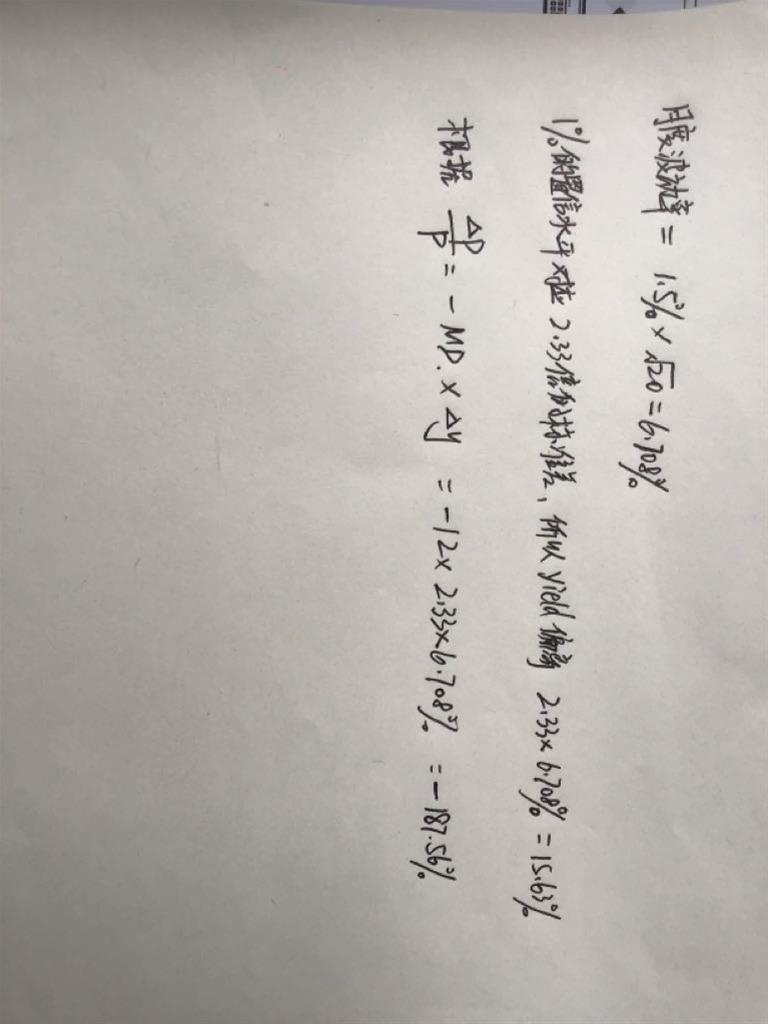 月度波动率 = 1.5% × √20 = 6.708%
1%的置信水平对应 2.33倍的标准差, 所以 yield 偏离 2.33×6.708% = 15.63%
根据 ΔP/P = - MD. × Δy = -12× 2.33×6.708% = -187.56%